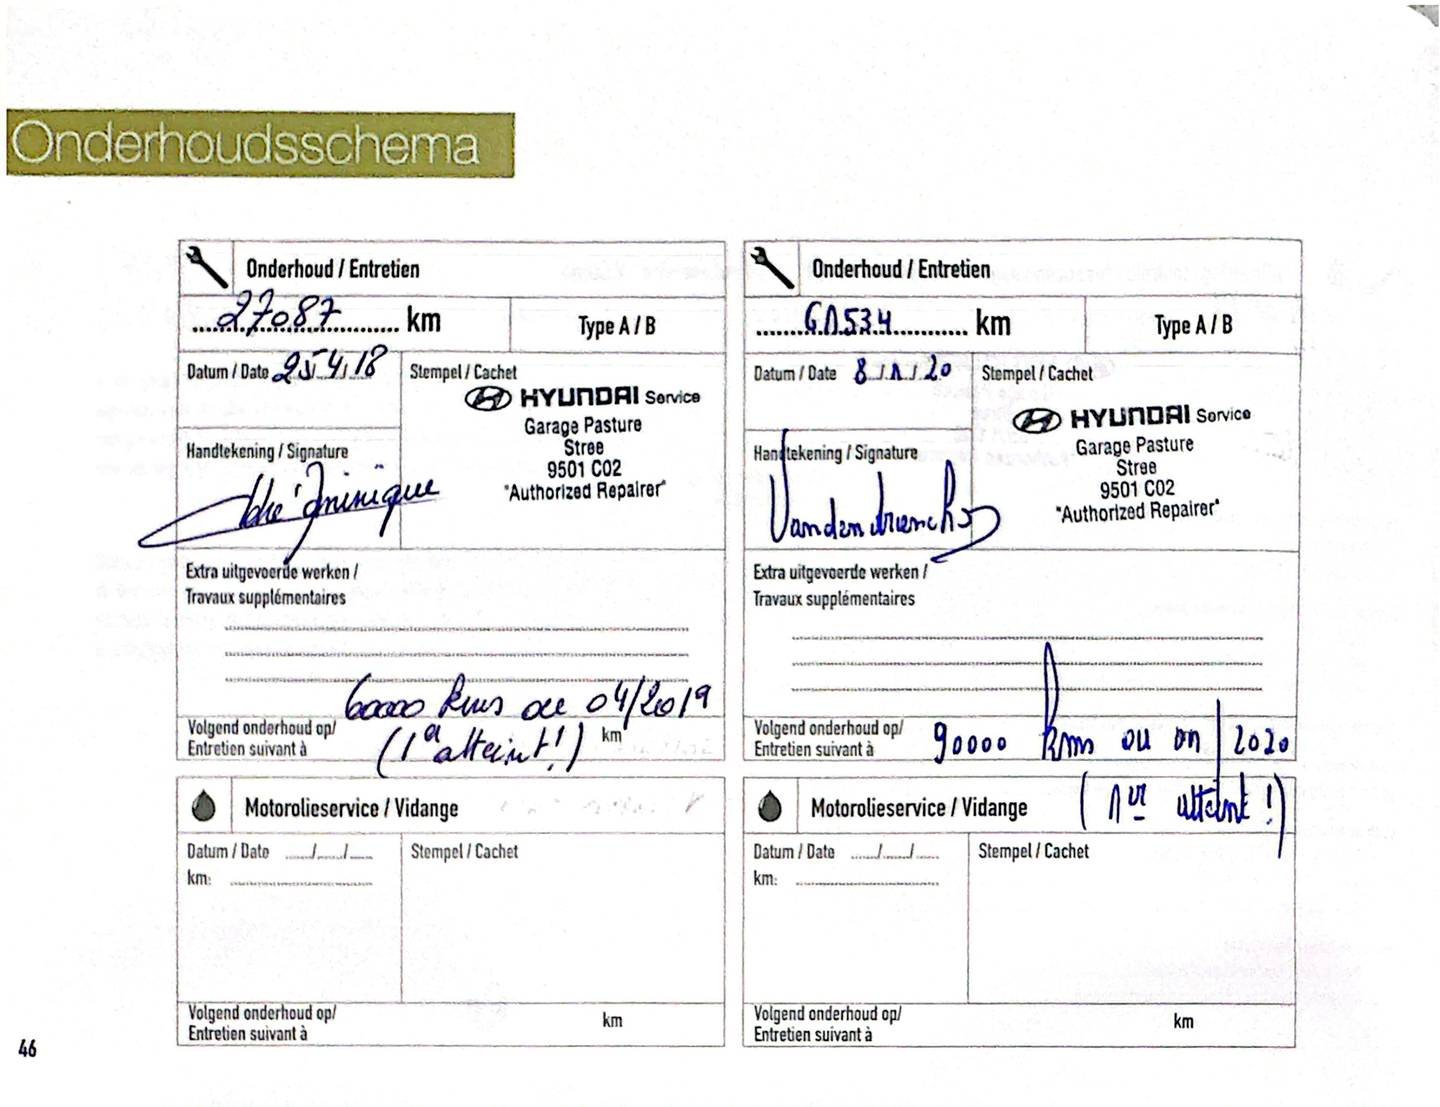 Onderhoudsschema
Onderhoud / Entretien
27087 km
Type A / B
Datum / Date 25/4/18
Stempel / Cachet
HYUNDAI Service
Garage Pasture
Stree
9501 C02
"Authorized Repairer"
Handtekening / Signature
Extra uitgevoerde werken /
Travaux supplémentaires
60000 kms ou 04/2019
Volgend onderhoud op/
Entretien suivant à
(1er atteint!) km
Motorolieservice / Vidange
Datum / Date ..../..../....
km:
Stempel / Cachet
Volgend onderhoud op/
Entretien suivant à
km
Onderhoud / Entretien
61534 km
Type A / B
Datum / Date 8/1/20
Stempel / Cachet
HYUNDAI Service
Garage Pasture
Stree
9501 C02
"Authorized Repairer"
Handtekening / Signature
Extra uitgevoerde werken /
Travaux supplémentaires
Volgend onderhoud op/
Entretien suivant à
90000 kms ou 01/2020
(1er atteint!)
Motorolieservice / Vidange
Datum / Date ..../..../....
km:
Stempel / Cachet
Volgend onderhoud op/
Entretien suivant à
km
46